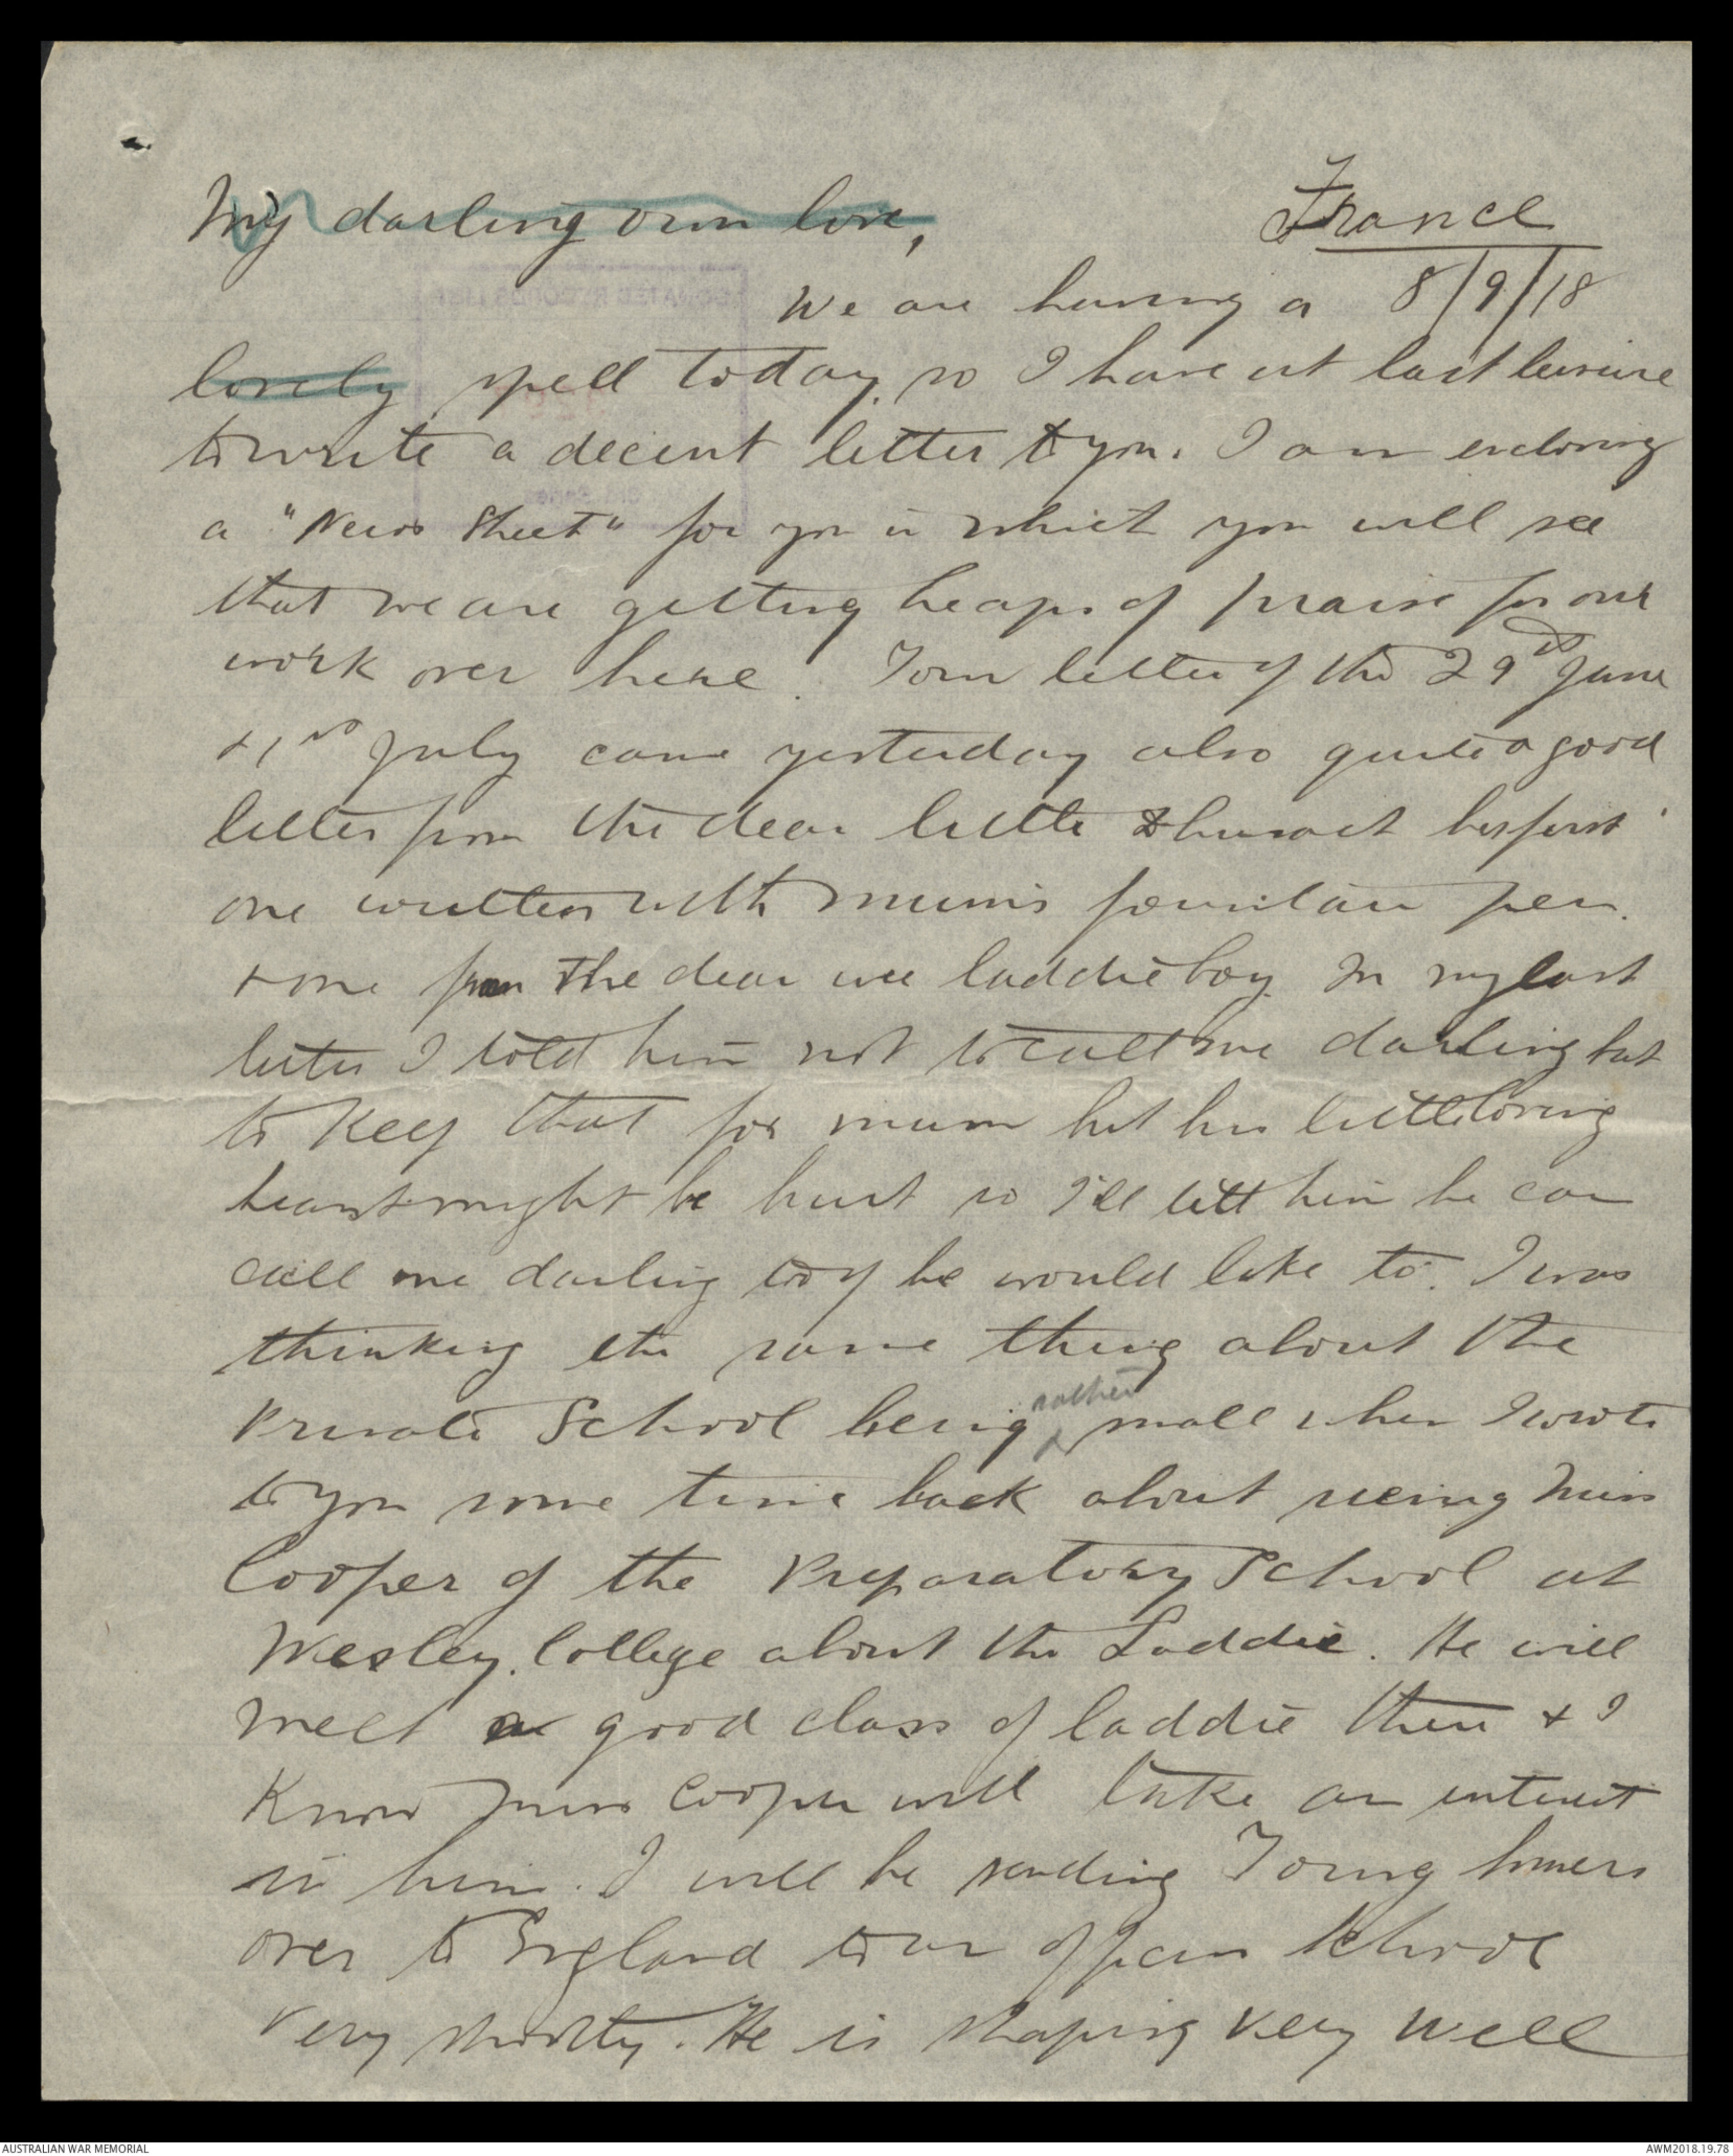 My darling own love,
France
8/9/18
We are having a
lovely spell today, so I have at last leisure
to write a decent letter to you. I am enclosing
a "News Sheet" for you in which you will see
that we are getting heaps of praise for our
work over here. Your letter of the 29th June
& 1st July came yesterday also quite a good
letter from the dear little her first
one written with mum's fountain pen.
& one from the dear wee laddie boy. In my last
letter I told him not to call me darling but
to keep that for mum but his little loving
heart might be hurt so I'll tell him he can
call me darling too if he would like to. I was
thinking the same thing about the
Private School being rather small when I wrote
to you some time back about seeing Miss
Cooper of the Preparatory School at
Wesley College about the Laddie. He will
meet a good class of laddie there & I
know Miss Cooper will take an interest
in him. I will be sending Young
over to England to an officers School
very shortly. He is shaping very well
AUSTRALIAN WAR MEMORIAL
AWM2018.19.78